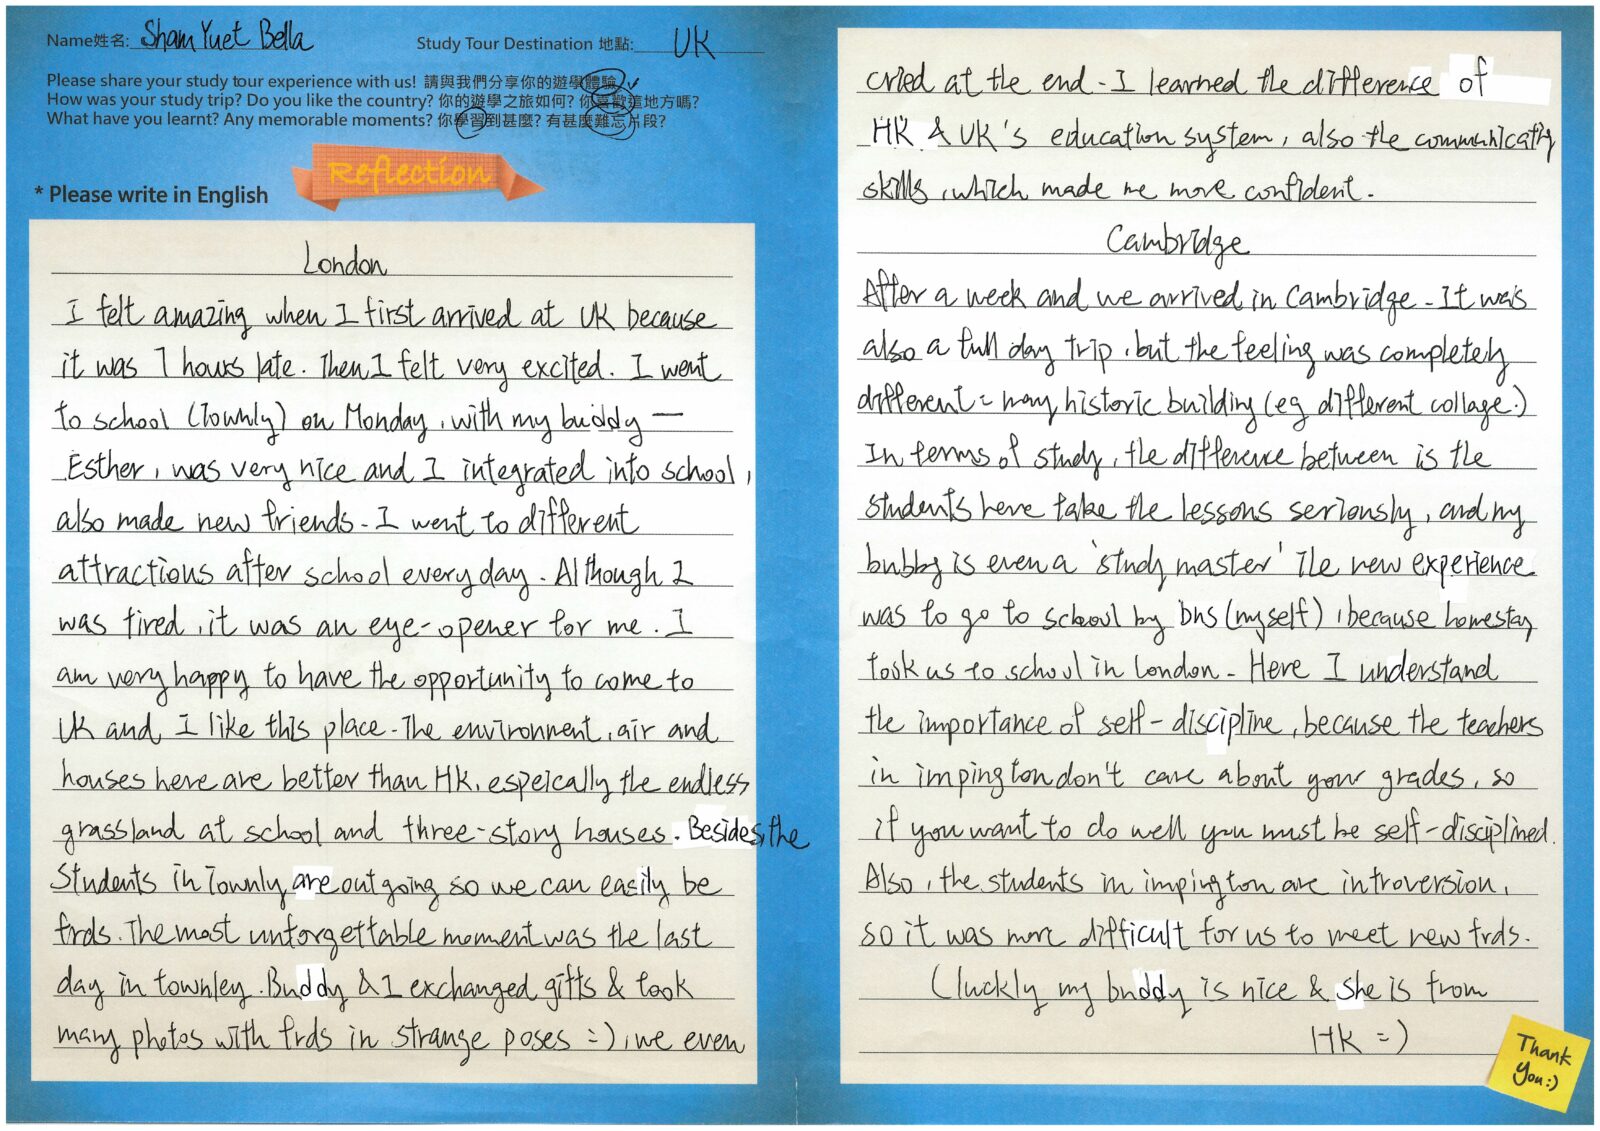 Name姓名: Sham Yuet Bella
Study Tour Destination 地點: UK
Please share your study tour experience with us! 請與我們分享你的遊學體驗
How was your study trip? Do you like the country? 你的遊學之旅如何? 你喜歡這地方嗎?
What have you learnt? Any memorable moments? 你學習到甚麼? 有甚麼難忘片段?
Reflection
* Please write in English
London
I felt amazing when I first arrived at UK because
it was 7 hours late. Then I felt very excited. I went
to school (Townly) on Monday, with my buddy —
Esther, was very nice and I integrated into school,
also made new friends. I went to different
attractions after school everyday. Although I
was tired, it was an eye-opener for me. I
am very happy to have the opportunity to come to
UK and I like this place. The environment, air and
houses here are better than HK, espeically the endless
grassland at school and three-story houses. Besides, the
Students in Townly are outgoing so we can easily be
frds. The most unforgettable moment was the last
day in townley. Buddy & I exchanged gifts & took
many photos with frds in strange poses =), we even
cried at the end. I learned the difference of
HK & UK's education system, also the
skills, which made me more confident.
Cambridge
After a week and we arrived in Cambridge. It was
also a full day trip, but the feeling was completely
different = many historic building (eg different collage.)
In terms of study, the difference between is the
students here take the lessons seriously, and my
bubby is even a 'study master' The new experience
was to go to school by (myself), because homestay
took us to school in London. Here I understand
the importance of self-discipline, because the teachers
in impington don't care about your grades, so
if you want to do well you must be self-disciplined.
Also, the students in impington are introversion,
so it was more difficult for us to meet new frds.
(luckly my buddy is nice & she is from
HK =)
Thank
You:)